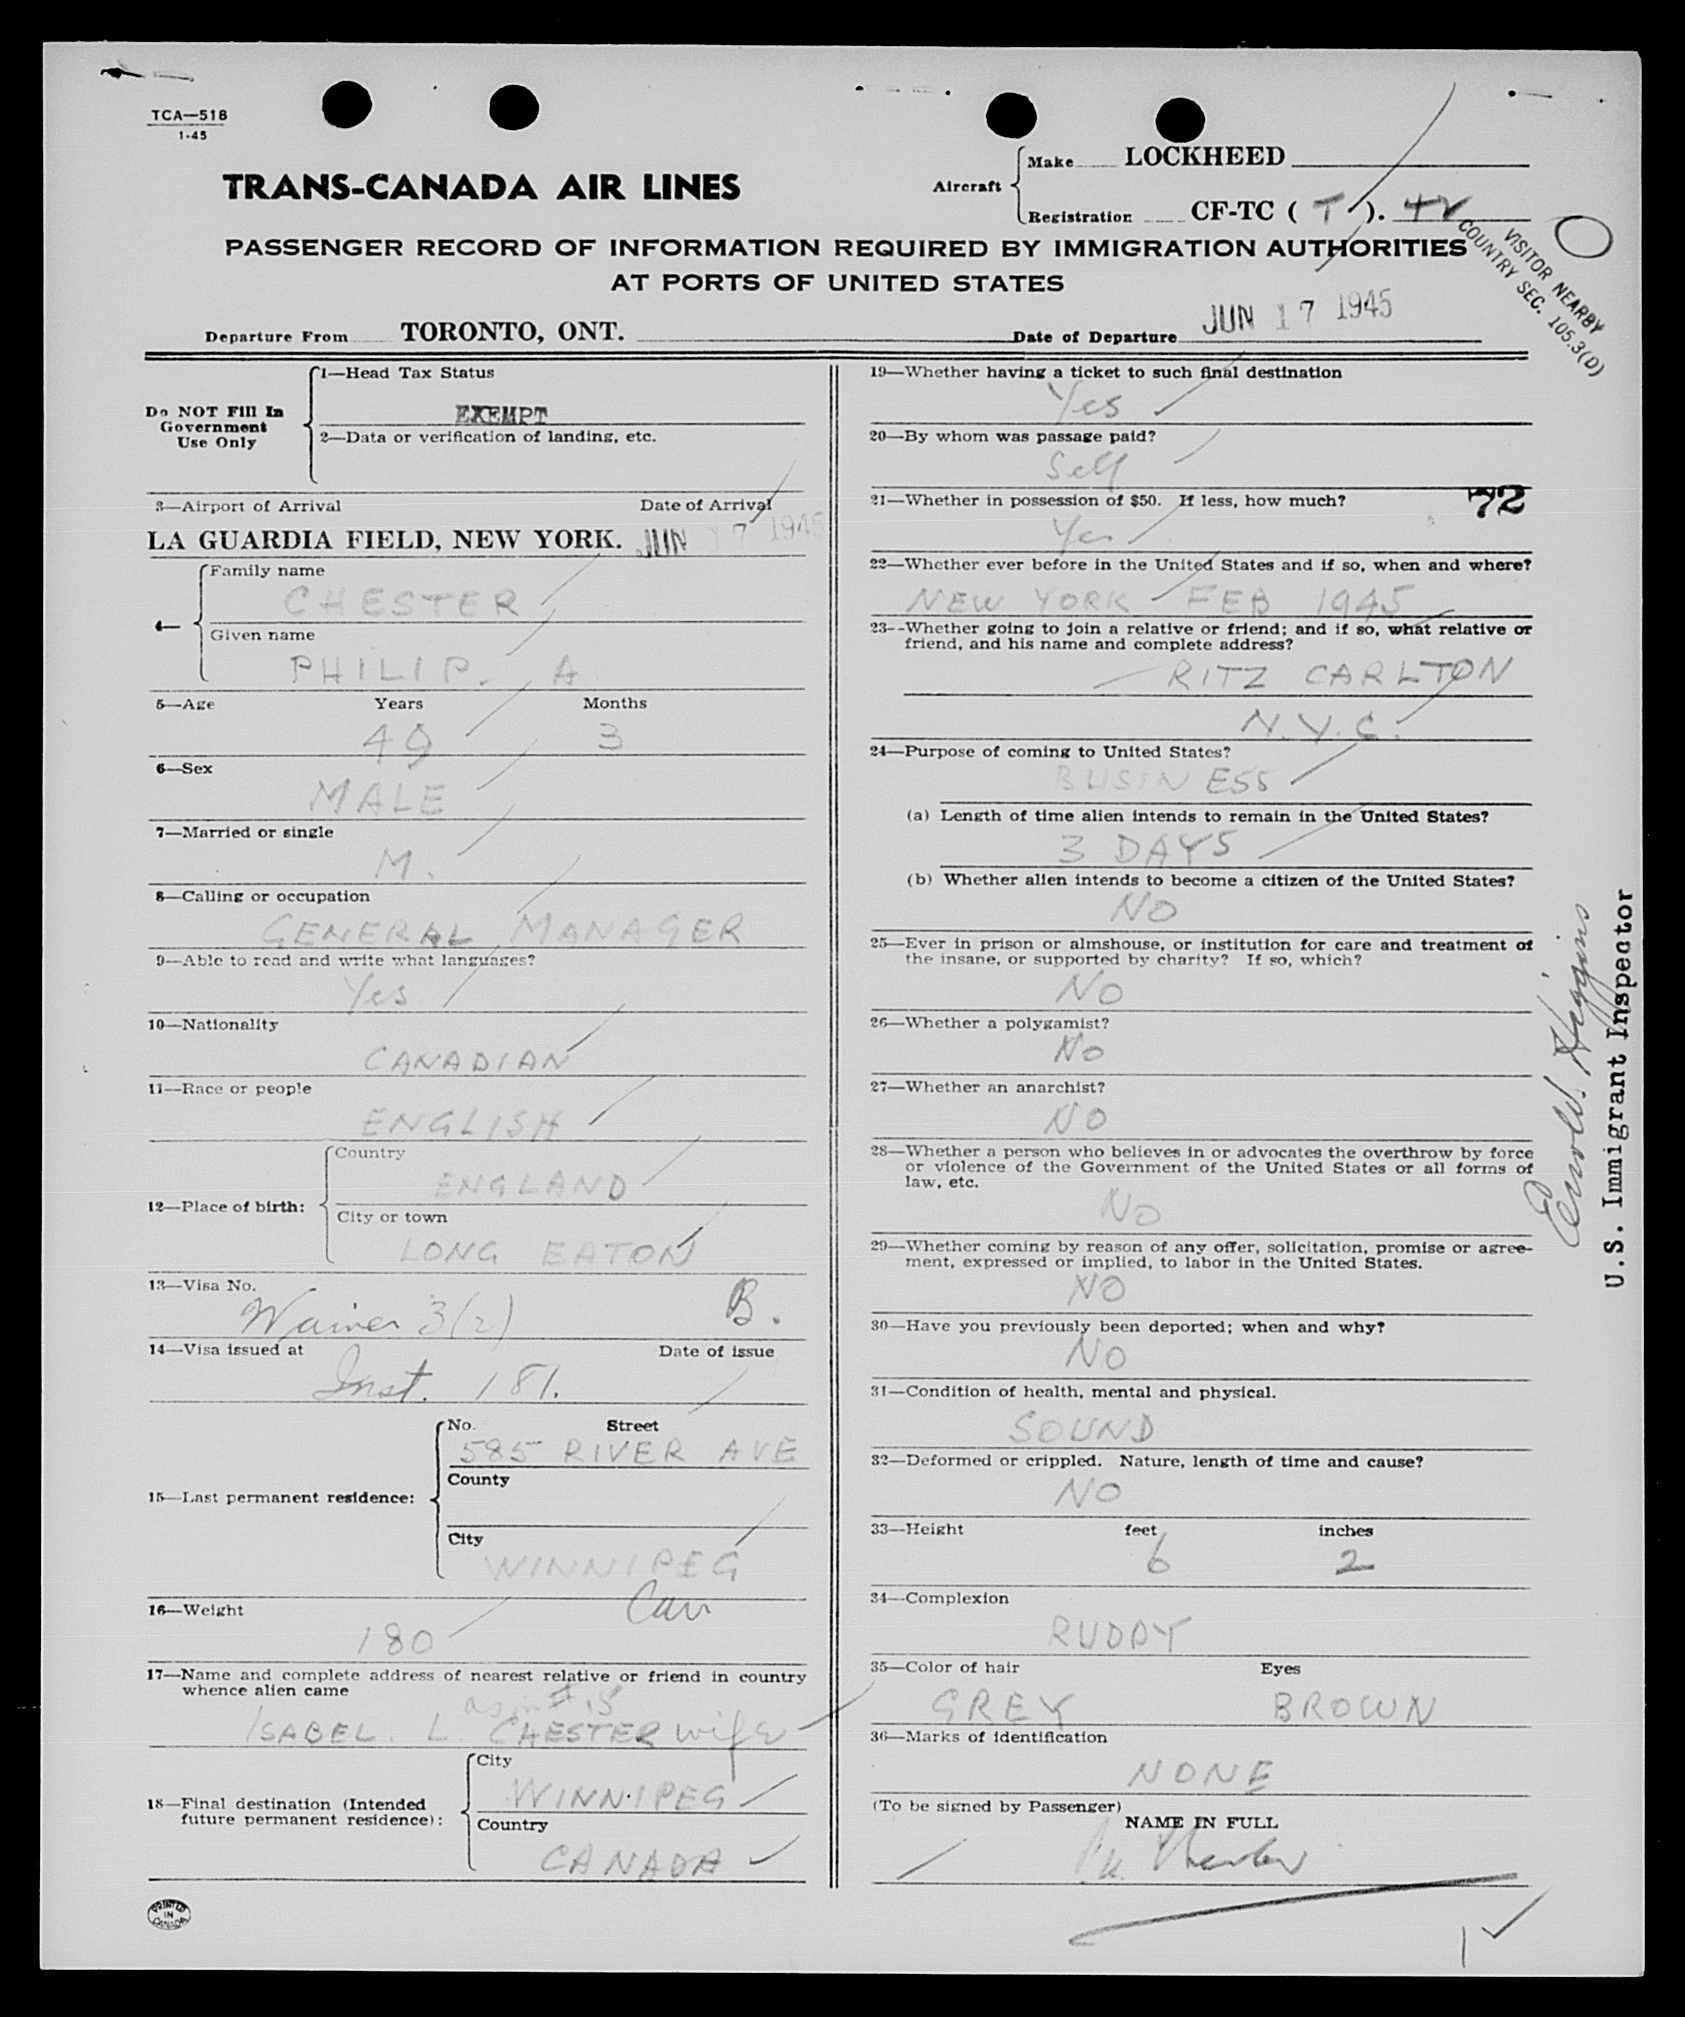 TCA—518
1-45
TRANS-CANADA AIR LINES
Aircraft
Make LOCKHEED
Registration CF-TC ( T ). 42
PASSENGER RECORD OF INFORMATION REQUIRED BY IMMIGRATION AUTHORITIES
AT PORTS OF UNITED STATES
VISITOR NEARBY
COUNTRY SEC. 105.3(D)
Departure From TORONTO, ONT. Date of Departure JUN 17 1945
Do NOT Fill In
Government
Use Only
1—Head Tax Status
EXEMPT
2—Data or verification of landing, etc.
3—Airport of Arrival Date of Arrival
LA GUARDIA FIELD, NEW YORK. JUN 17 1945
4—
Family name
CHESTER
Given name
PHILIP. A
5—Age Years Months
49 3
6—Sex
MALE
7—Married or single
M.
8—Calling or occupation
GENERAL MANAGER
9—Able to read and write what languages?
Yes
10—Nationality
CANADIAN
11—Race or people
ENGLISH
12—Place of birth:
Country
ENGLAND
City or town
LONG EATON
13—Visa No.
Waiver 3(2) B.
14—Visa issued at Date of issue
Inst. 181.
15—Last permanent residence:
No. Street
585 RIVER AVE
County
City
WINNIPEG
Can
16—Weight
180
17—Name and complete address of nearest relative or friend in country
whence alien came
as in # 15
ISABEL. L. CHESTER wife
18—Final destination (Intended
future permanent residence):
City
WINNIPEG
Country
CANADA
PRINTED
IN
CANADA
19—Whether having a ticket to such final destination
Yes
20—By whom was passage paid?
Self
21—Whether in possession of $50. If less, how much?
72
Yes
22—Whether ever before in the United States and if so, when and where?
NEW YORK - FEB 1945
23--Whether going to join a relative or friend; and if so, what relative or
friend, and his name and complete address?
RITZ CARLTON
N.Y.C.
24—Purpose of coming to United States?
BUSINESS
(a) Length of time alien intends to remain in the United States?
3 DAYS
(b) Whether alien intends to become a citizen of the United States?
NO
25—Ever in prison or almshouse, or institution for care and treatment of
the insane, or supported by charity? If so, which?
NO
26—Whether a polygamist?
No
27—Whether an anarchist?
NO
28—Whether a person who believes in or advocates the overthrow by force
or violence of the Government of the United States or all forms of
law, etc.
No
29—Whether coming by reason of any offer, solicitation, promise or agree-
ment, expressed or implied, to labor in the United States.
NO
30—Have you previously been deported; when and why?
NO
31—Condition of health, mental and physical.
SOUND
32—Deformed or crippled. Nature, length of time and cause?
NO
33—Height feet inches
6 2
34—Complexion
RUDDY
35—Color of hair Eyes
GREY BROWN
36—Marks of identification
NONE
(To be signed by Passenger)
NAME IN FULL
Chester
Higgins
U.S. Immigrant Inspector